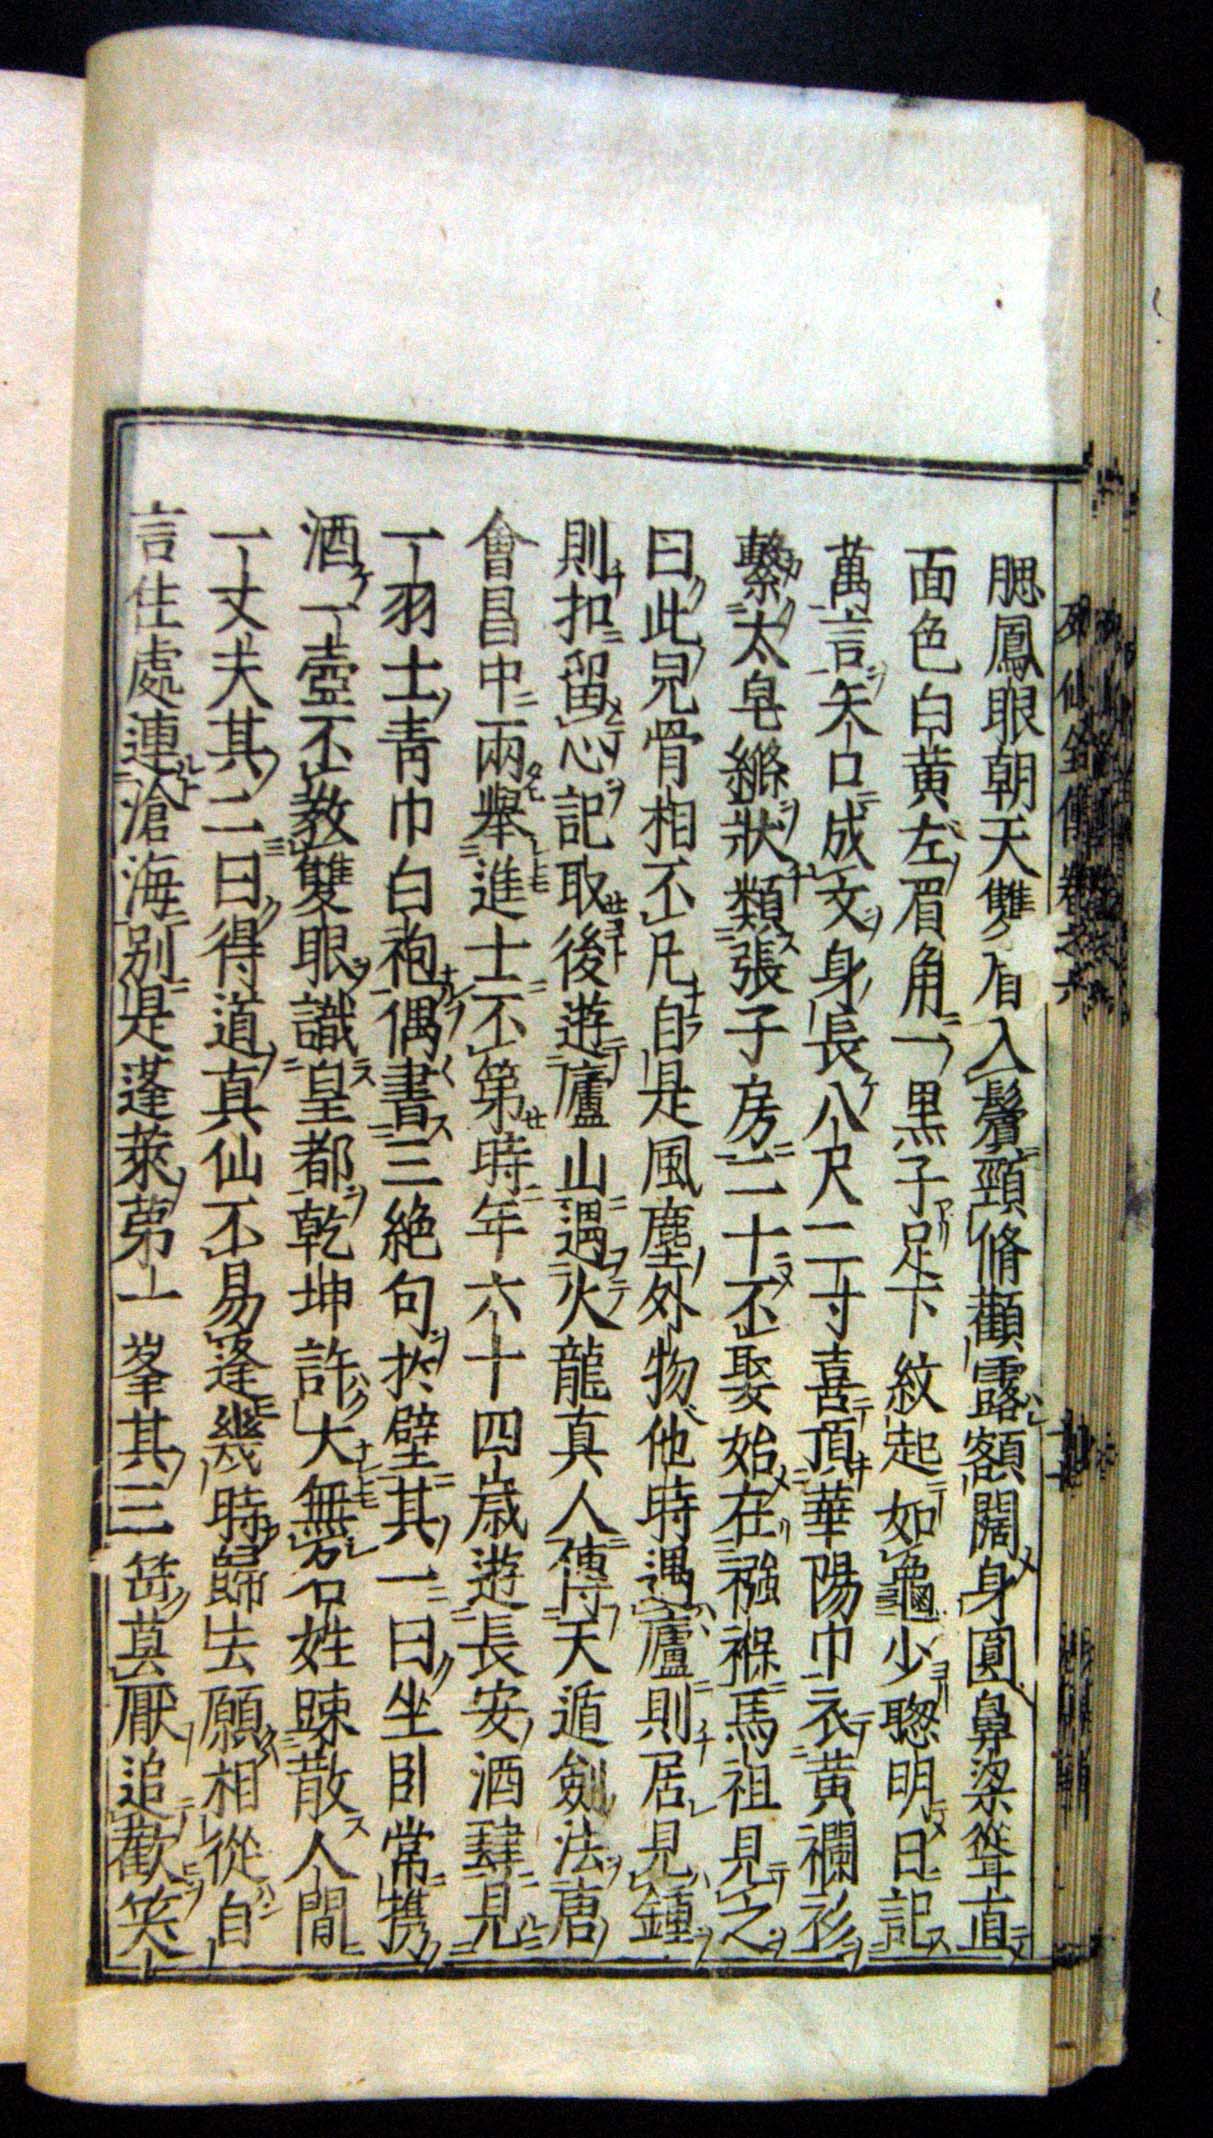 腮鳳眼朝天雙眉入鬢頸脩顴露額闊身圓鼻梁聳直
面色白黃左眉角一黑子足下紋起如龜少聰明日記
萬言矢口成文身長八尺二寸喜頂華陽巾衣黃襴衫
繫太皂縧狀類張子房二十不娶始在襁褓馬祖見之
曰此兒骨相不凡自是風塵外物他時遇廬則居見鍾
則扣留心記取後遊廬山遇火龍真人傳天遁劍法唐
會昌中兩舉進士不第時年六十四歲遊長安酒肆見
一羽士青巾白袍偶書三絕句於壁其一曰坐臥常携
酒一壺不教雙眼識皇都乾坤許大無名姓踈散人間
一丈夫其二曰得道真仙不易逢幾時歸去願相從自
言住處連滄海別是蓬萊第一峯其三曰莫厭追歡笑
列仙全傳 卷之六